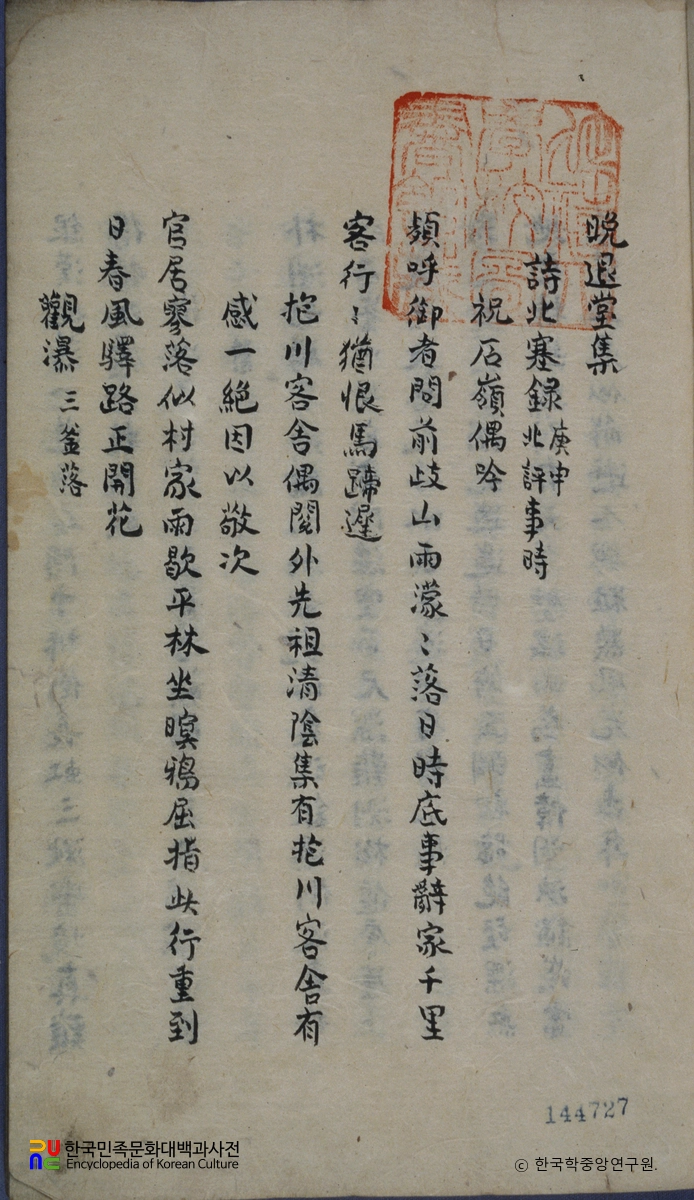 晩退堂集
詩北塞錄 庚申北評事時
祝石嶺偶吟
頻呼御者問前歧山雨濛〻落日時底事辭家千里
客行〻猶恨馬蹄遲
抱川客舍偶閱外先祖清陰集有抱川客舍有
感一絶因以敬次
官居寥落似村家雨歇平林坐暝鴉屈指此行重到
日春風驛路正開花
觀瀑 三釜落
144727
한국민족문화대백과사전
Encyclopedia of Korean Culture
ⓒ 한국학중앙연구원.